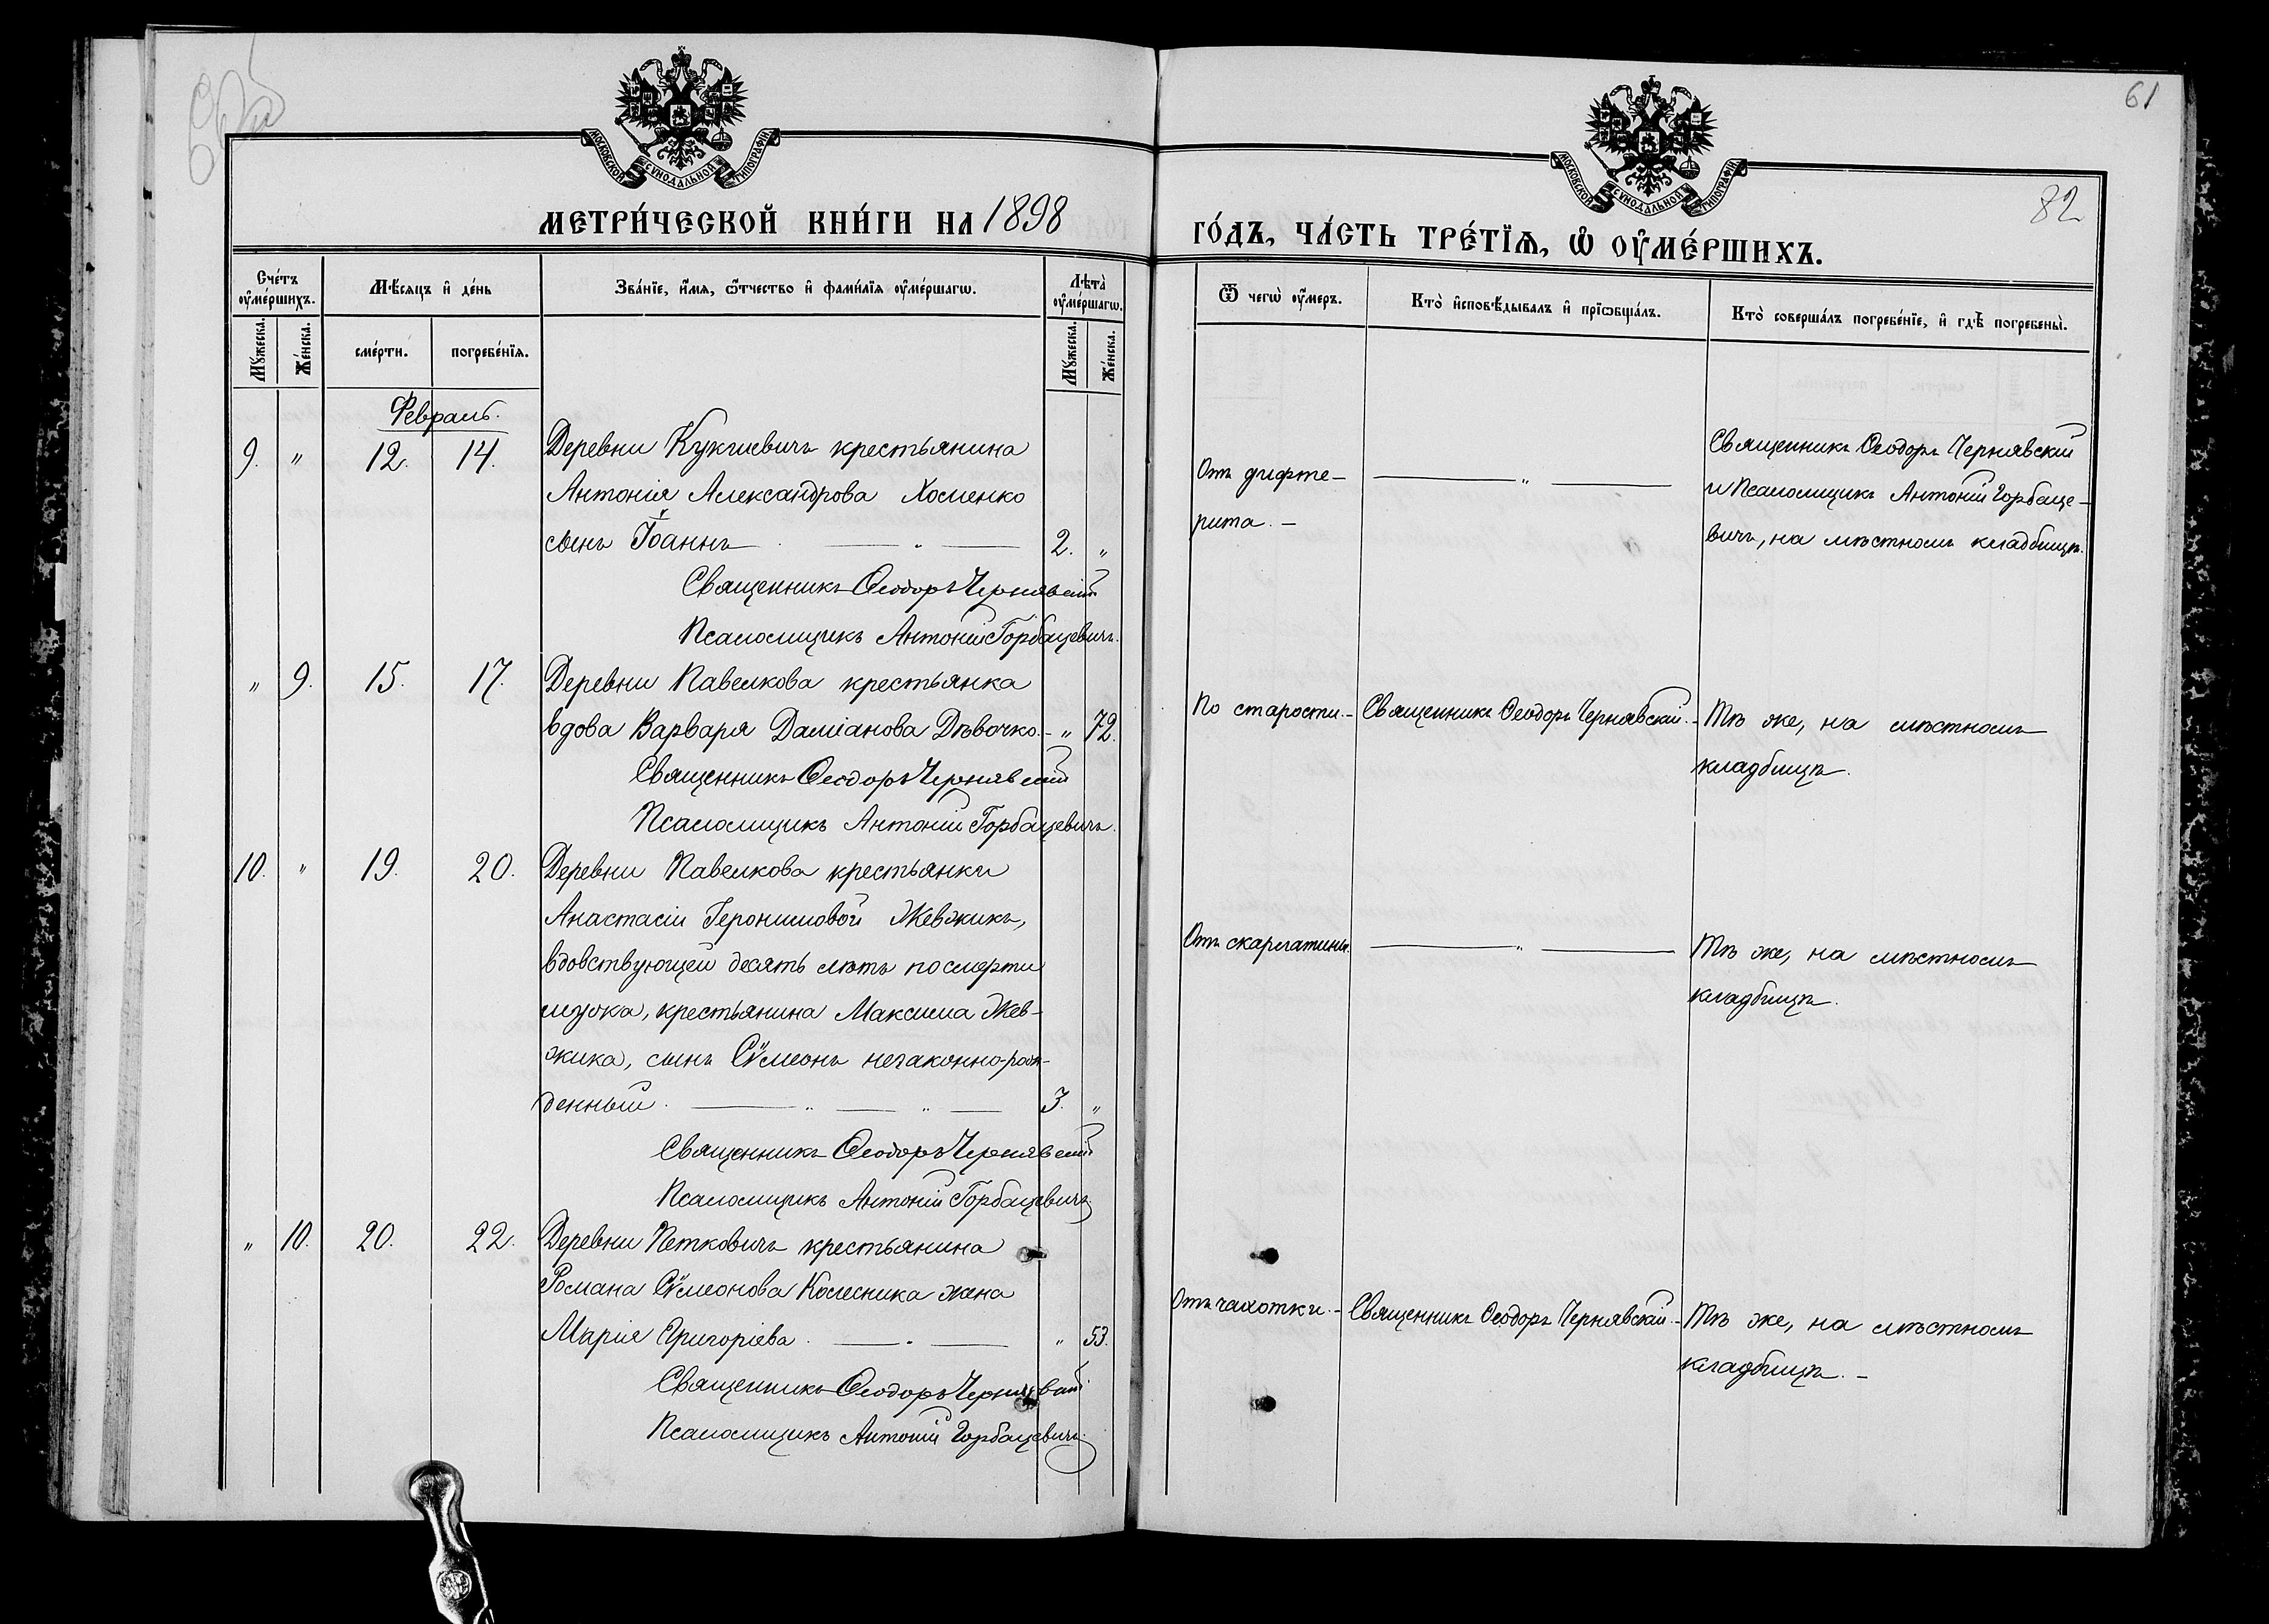 61
82
МОСКОВСКОЙ СѴНОДАЛЬНОЙ ТИПОГРАФІИ
МОСКОВСКОЙ СѴНОДАЛЬНОЙ ТИПОГРАФІИ
МЕТРИ́ЧЕСКОЙ КНИ́ГИ НА 1898
ГО́ДЪ, ЧА́СТЬ ТРЕ́ТІѦ, Ѡ҆ ОУ҆МЕ́РШИХЪ.
Сче́тъ оу҆ме́ршихъ.
Мѣ́сяцъ и҆ де́нь
Зва́нїе, и҆́мя, ѻ҆́тчество и҆ фами́лїя оу҆ме́ршагѡ.
Лѣ́та оу҆ме́ршагѡ.
Ѿ чегѡ̀ оу҆́меръ.
Кто̀ и҆сповѣ́дывалъ и҆ прїѡбща́лъ.
Кто̀ соверша́лъ погребе́нїе, и҆ гдѣ̀ погребены̀.
Му́жеска. Же́нска. сме́рти. погребе́нїя. Му́жеска. Же́нска.
Февраль.
9. " 12. 14. Деревни Кукчевичъ крестьянина
Антонія Александрова Хоменко
сынъ Іоаннъ . — " — 2. "
Священникъ Ѳеодоръ Чернявскій
Псаломщикъ Антоній Горбацевичъ.
Отъ дифте-
рита. —
— " —
Священникъ Ѳеодоръ Чернявскій
и Псаломщикъ Антоній Горбаце-
вичъ, на мѣстномъ кладбищѣ.
" 9. 15. 17. Деревни Павелкова крестьянка
вдова Варвара Даміанова Дѣвочко. - " 72.
Священникъ Ѳеодоръ Чернявскій
Псаломщикъ Антоній Горбацевичъ.
По старости. - Священникъ Ѳеодоръ Чернявскій. - Тѣ же, на мѣстномъ
кладбищѣ.
10. " 19. 20. Деревни Павелкова крестьянки
Анастасіи Іеронимовой Жевжикъ,
вдовствующей десять лѣтъ по смерти
мужа, крестьянина Максима Жев-
жика, сынъ Сѵмеонъ незаконно-рож-
денный. — " — " — 3. "
Священникъ Ѳеодоръ Чернявскій
Псаломщикъ Антоній Горбацевичъ
Отъ скарлатины. — " — Тѣ же, на мѣстномъ
кладбищѣ.
" 10. 20. 22. Деревни Петковичъ крестьянина
Романа Сѵмеонова Колесника жена
Марія Григоріева. — " — " 53.
Священникъ Ѳеодоръ Чернявскій
Псаломщикъ Антоній Горбацевичъ.
Отъ чахотки. - Священникъ Ѳеодоръ Чернявскій. - Тѣ же, на мѣстномъ
кладбищѣ. —